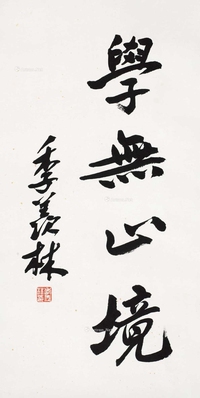 學無止境
季羨林